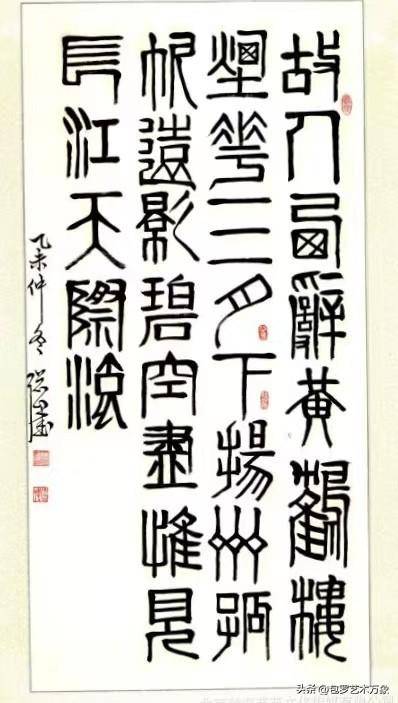 故人西辭黃鶴樓
煙華三月下揚州孤
帆遠影碧空盡惟見
長江天際流
乙未仲冬
头条@包罗艺术万象